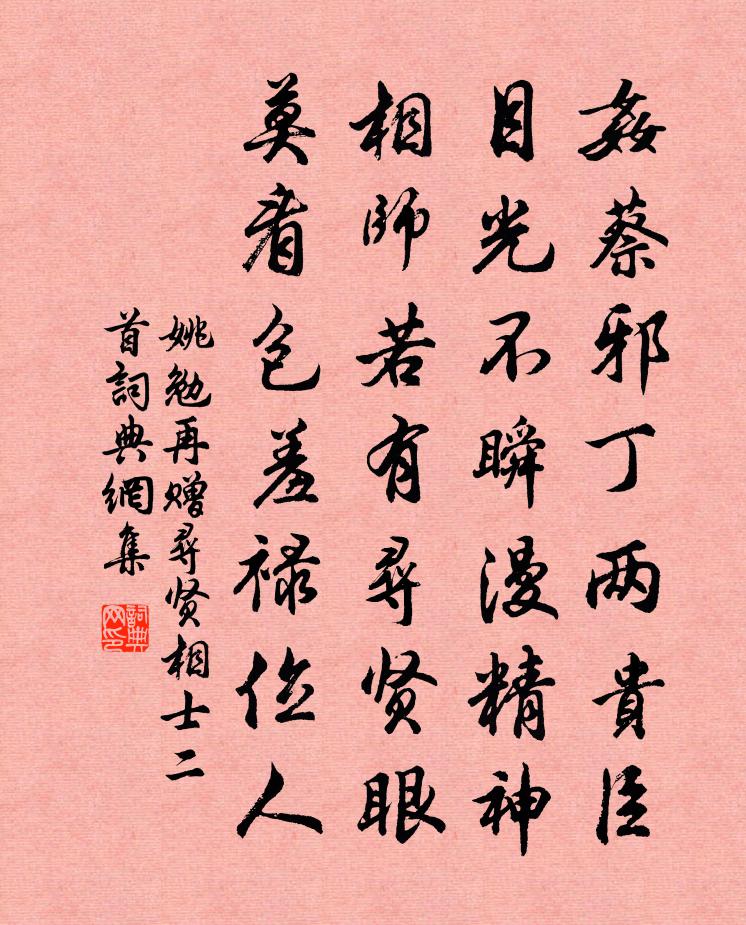 姦蔡邪丁两貴臣
目光不瞬漫精神
相師若有尋贤眼
莫看包羞禄位人
姚勉再赠尋贤相士二
首詞典網集
詞典网印